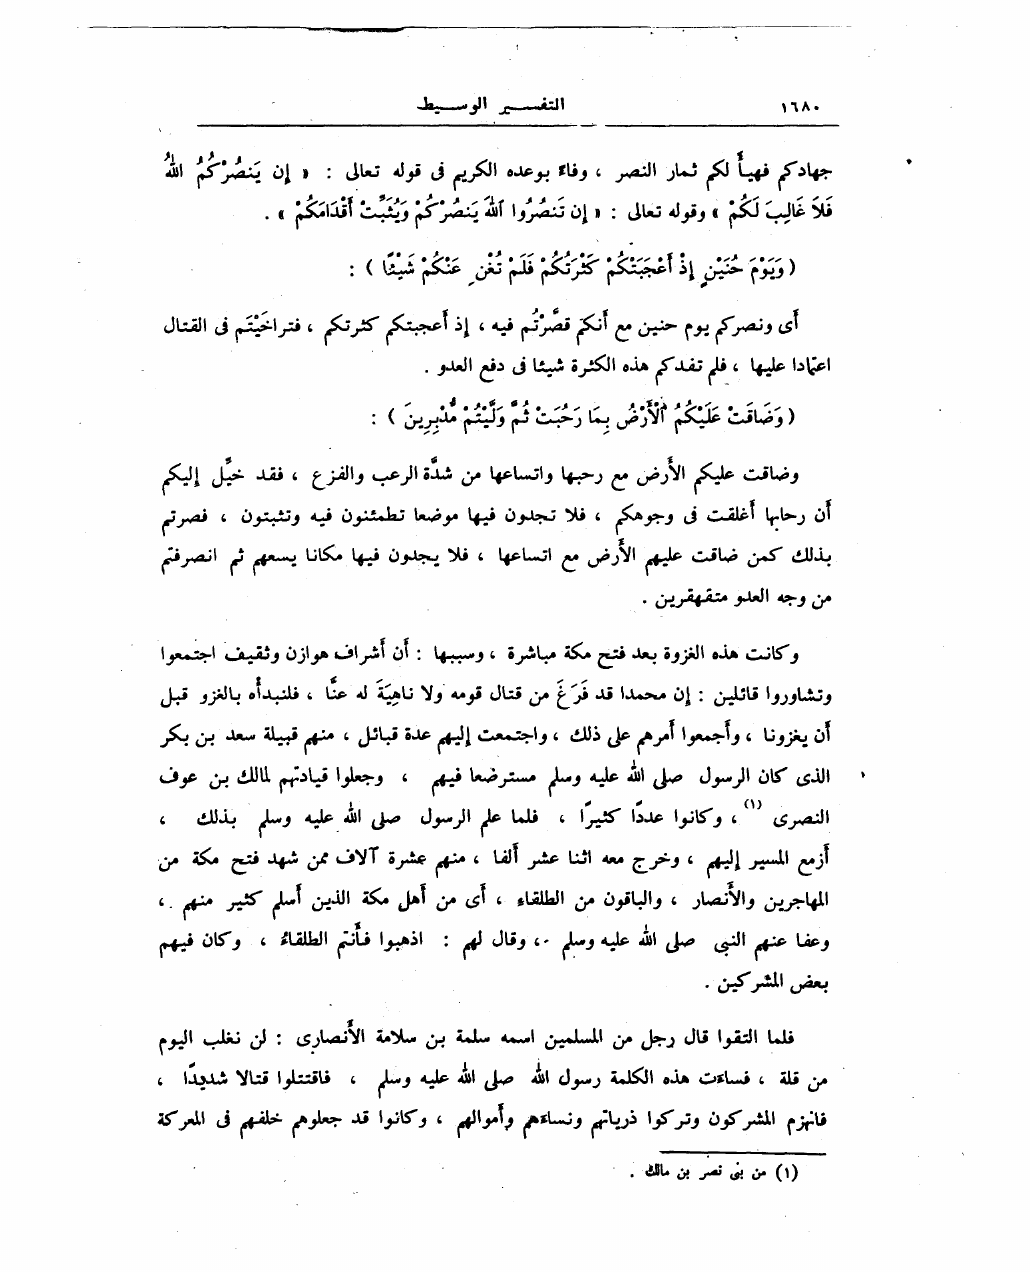 ١٦٨٠ التفسير الوسيط
جهادكم فهيأ لكم ثمار النصر ، وفاءً بوعده الكريم فى قوله تعالى : « إِن يَنصُرْكُمُ اللهُ
فَلاَ غَالِبَ لَكُمْ » وقوله تعالى : « إِن تَنصُرُوا ٱللهَ يَنصُرْكُمْ وَيُثَبِّتْ أَقْدَامَكُمْ » .
( وَيَوْمَ حُنَيْنٍ إِذْ أَعْجَبَتْكُمْ كَثْرَتُكُمْ فَلَمْ تُغْنِ عَنكُمْ شَيْئًا ) :
أى ونصركم يوم حنين مع أنكم قصَّرْتُم فيه ، إذ أعجبتكم كثرتكم ، فتراخَيْتَم فى القتال
اعتمادا عليها ، فلم تفدكم هذه الكثرة شيئا فى دفع العدو .
( وَضَاقَتْ عَلَيْكُمُ ٱلْأَرْضُ بِمَا رَحُبَتْ ثُمَّ وَلَّيْتُمْ مُّدْبِرِينَ ) :
وضاقت عليكم الأَرض مع رحبها واتساعها من شدَّة الرعب والفزع ، فقد خيِّل إليكم
أن رحابها أغلقت فى وجوهكم ، فلا تجدون فيها موضعا تطمئنون فيه وتثبتون ، فصرتم
بذلك كمن ضاقت عليهم الأَرض مع اتساعها ، فلا يجدون فيها مكانا يسعهم ثم انصرفتم
من وجه العدو متقهقرين .
وكانت هذه الغزوة بعد فتح مكة مباشرة ، وسببها : أن أشراف هوازن وثقيف اجتمعوا
وتشاوروا قائلين : إن محمدا قد فَرَغَ من قتال قومه ولا ناهِيَةَ له عنَّا ، فلنبدأْه بالغزو قبل
أن يغزونا ، وأجمعوا أمرهم على ذلك ، واجتمعت إليهم عدة قبائل ، منهم قبيلة سعد بن بكر
الذى كان الرسول صلى الله عليه وسلم مسترضعا فيهم ، وجعلوا قيادتهم لمالك بن عوف
النصرى (١) ، وكانوا عددًا كثيرًا ، فلما علم الرسول صلى الله عليه وسلم بذلك ،
أزمع المسير إليهم ، وخرج معه اثنا عشر ألفا ، منهم عشرة آلاف ممن شهد فتح مكة من
المهاجرين والأَنصار ، والباقون من الطلقاء ، أى من أهل مكة الذين أسلم كثير منهم ،
وعفا عنهم النبى صلى الله عليه وسلم ، وقال لهم : اذهبوا فأَنتم الطلقاءُ ، وكان فيهم
بعض المشركين .
فلما التقوا قال رجل من المسلمين اسمه سلمة بن سلامة الأَنصارى : لن نغلب اليوم
من قلة ، فساءَت هذه الكلمة رسول الله صلى الله عليه وسلم ، فاقتتلوا قتالا شديدًا ،
فانهزم المشركون وتركوا ذرياتهم ونساءَهم وأموالهم ، وكانوا قد جعلوهم خلفهم فى المعركة
(١) من بنى نصر بن مالك .